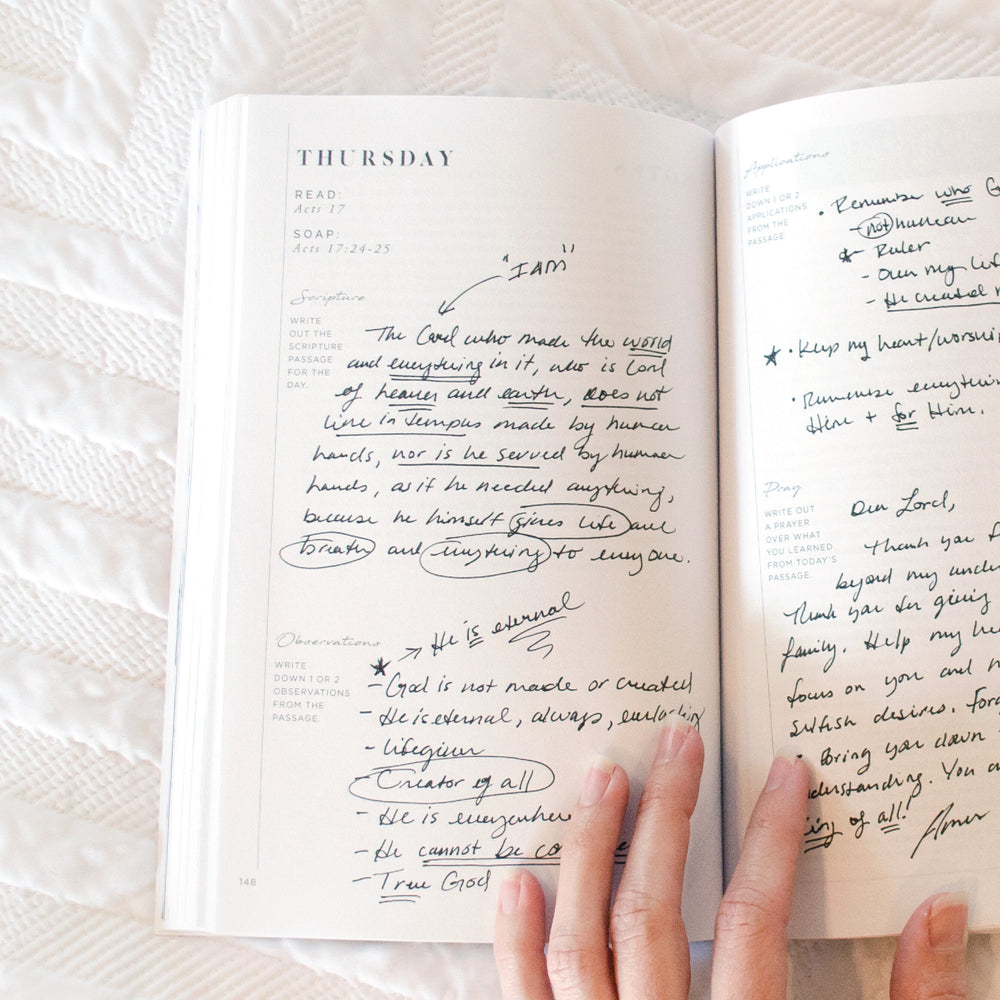 THURSDAY
READ:
Acts 17
SOAP:
Acts 17:24-25
Scripture
WRITE
OUT THE
SCRIPTURE
PASSAGE
FOR THE
DAY.
"I AM"
The Lord who made the world
and everything in it, who is Lord
of heaven and earth, does not
live in temples made by human
hands, nor is he served by human
hands, as if he needed anything,
because he himself gives life and
breath and everything to everyone.
Observations
WRITE
DOWN 1 OR 2
OBSERVATIONS
FROM THE
PASSAGE.
He is eternal
- God is not made or created
- He is eternal, always, everlasting
- lifegiver
- Creator of all
- He is everywhere
- He cannot be
- True God
148
Applications
WRITE
DOWN 1 OR 2
APPLICATIONS
FROM THE
PASSAGE.
• Remember who G
- not human
- Ruler
- Over my life
- He created
• Keep my heart/worship
• Remember everything
Him + for Him.
Pray
WRITE OUT
A PRAYER
OVER WHAT
YOU LEARNED
FROM TODAY'S
PASSAGE.
Dear Lord,
Thank you f
beyond my under
Thank you for giving
family. Help my he
focus on you and
selfish desires. For
Bring you down
understanding. You a
King of all!
Amen